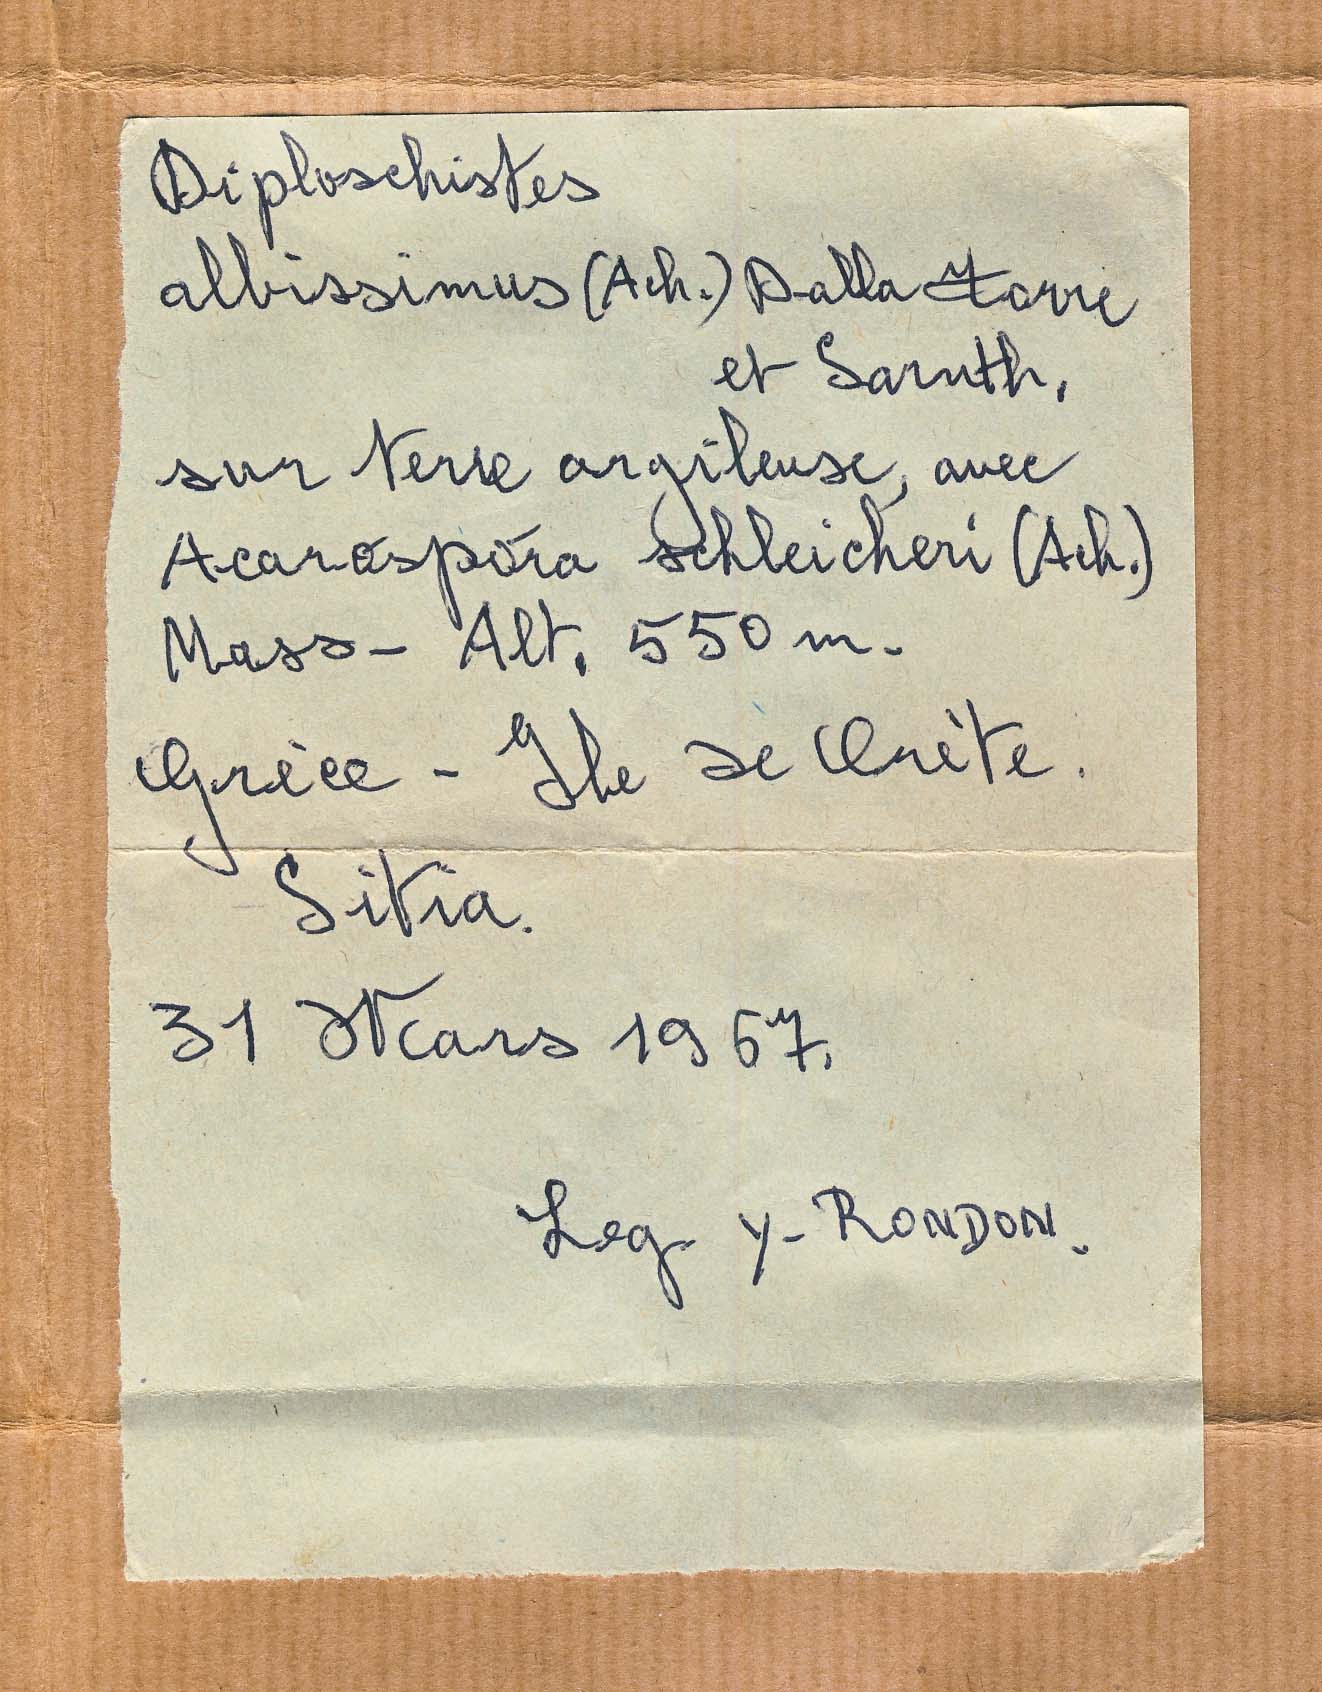 Diploschistes
albissimus (Ach.) Dalla Torre
et Sarnth.
sur terre argileuse, avec
Acarospora schleicheri (Ach.)
Mass - Alt. 550 m.
Grèce - Ile de Crète.
Sitia.
31 Mars 1967.
Leg. Y. RONDON.